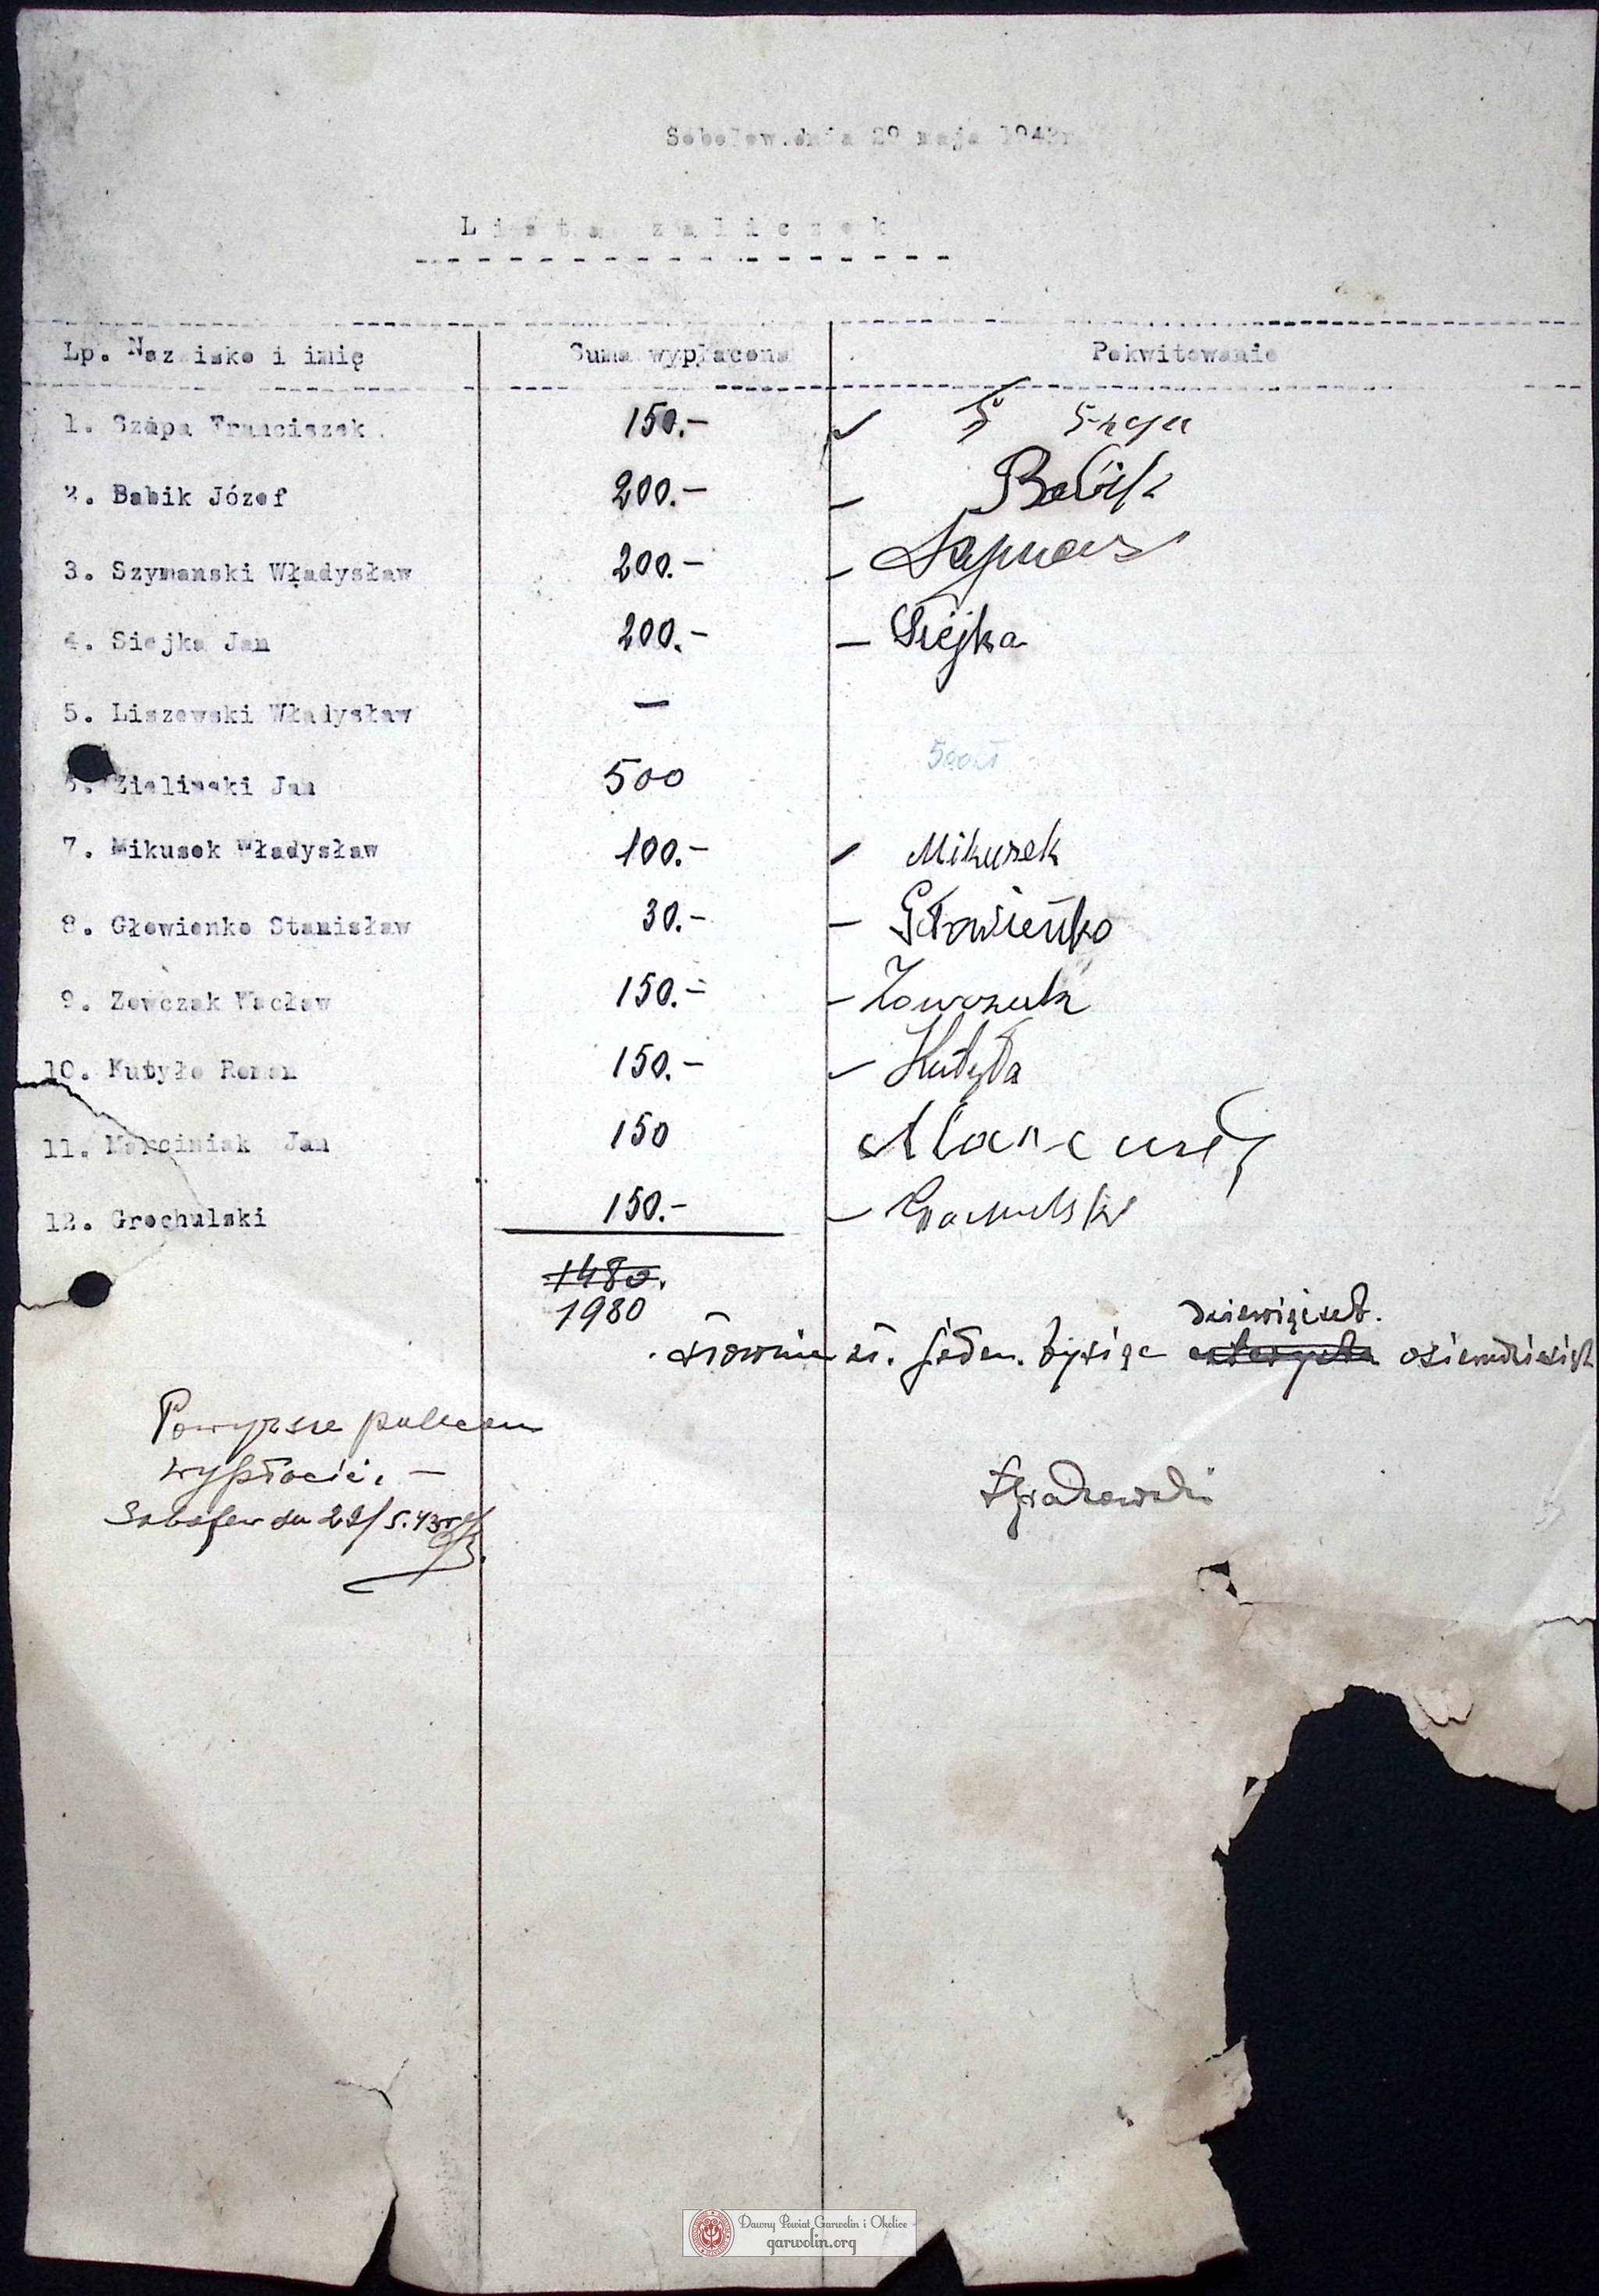 Sobolew.dnia 29 maja 1943r
Lista zaliczek
Lp. Nazwisko i imię Suma wypłacona Pokwitowanie
1. Szápa Franciszek. 150.-
2. Babik Józef 200.- Babik
3. Szymanski Władysław 200.-
4. Siejka Jan 200.- Siejka
5. Liszewski Władysław —
6. Zielinski Jan 500 500zł
7. Mikusek Władysław 100.- Mikusek
8. Głowienko Stanisław 30.- Głowieńko
9. Zowczak Wacław 150.- Zowczak
10. Kutyło Roman 150.- Kutyła
11. Marciniak Jan 150
12. Grochulski 150.- Grochulski
1480.
1980
dziewięćset.
słownie zł. jeden. tysiąc czterysta osiemdziesiąt
Powyższe polecam
wypłacić. —
Sobolew dn 29/5.43r
Dawny Powiat Garwolin i Okolice
garwolin.org